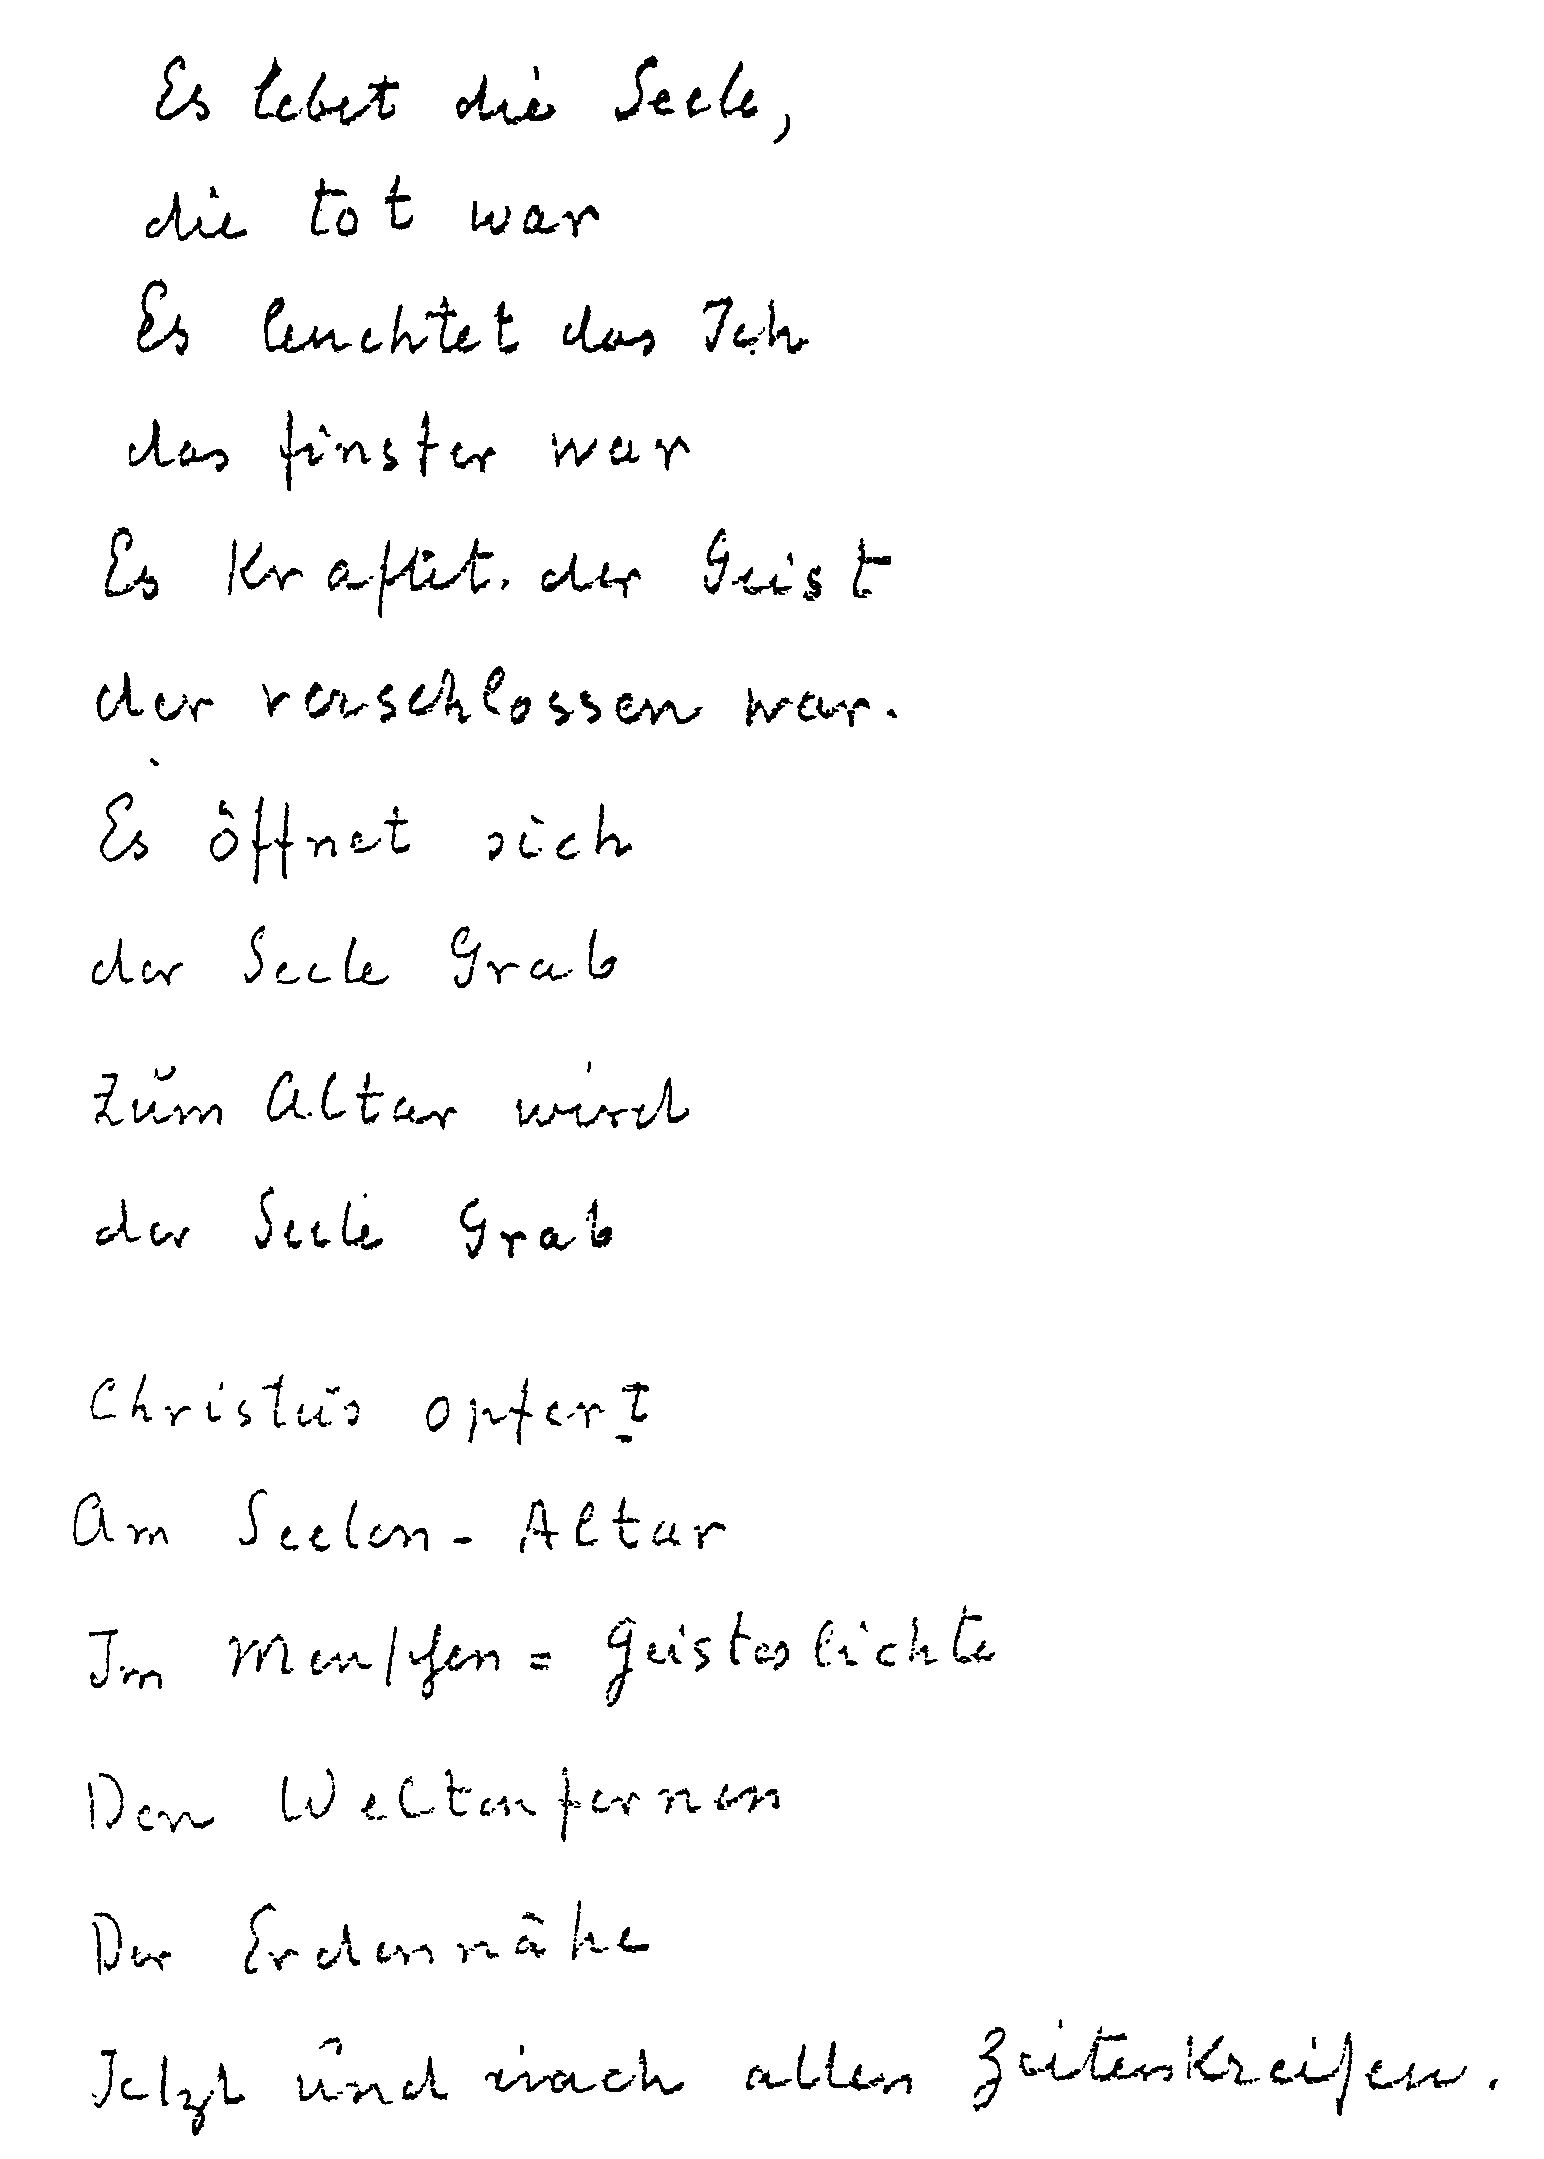 Es lebet die Seele,
die tot war
Es leuchtet das Ich
das finster war
Es Kraftet. der Geist
der verschlossen war.
Es öffnet sich
der Seele Grab
Zum Altar wird
der Seele Grab
Christus opfert
Am Seelen - Altar
Im Menschen = Geisteslichte
Den Weltenfernen
Der Erdennähe
Jetzt und nach allen Zeitenskreisen.